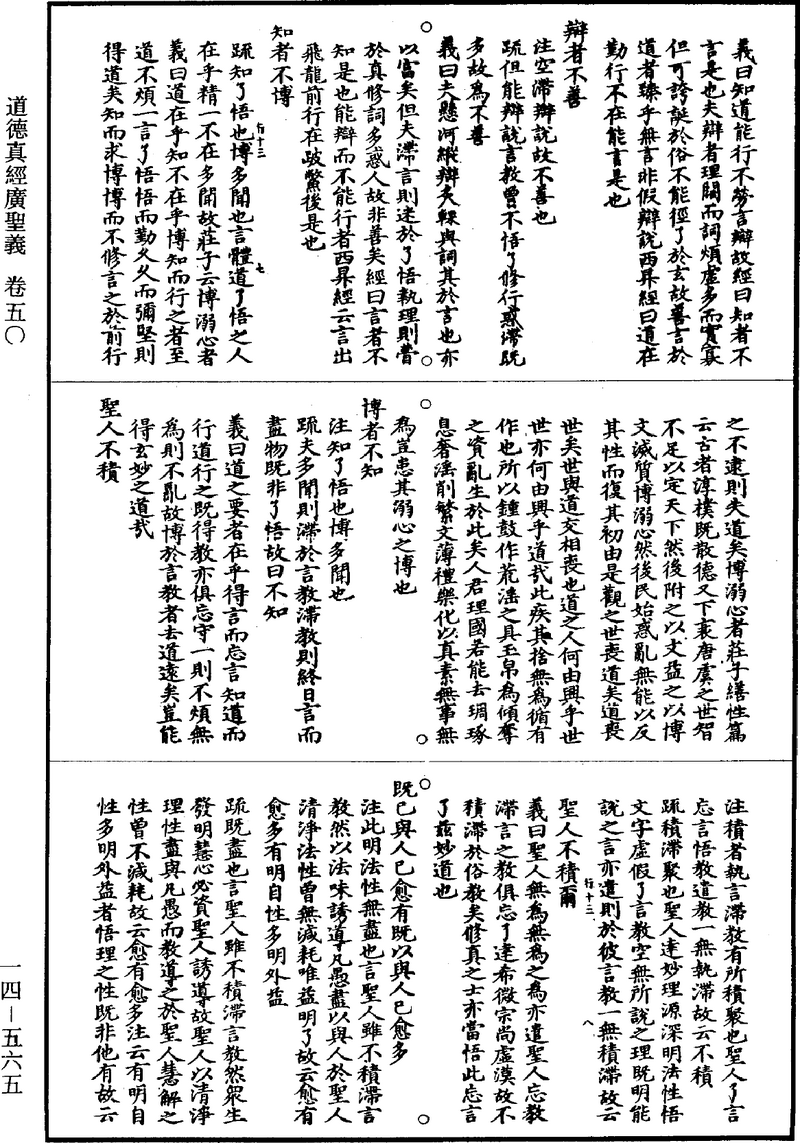 道德真經廣聖義　卷五〇
一四—五六五
義曰知道能行不勞言辯故經曰知者不
言是也夫辯者理闊而詞煩虛多而實寡
但可誇誕於俗不能徑了於玄故善言於
道者臻乎無言非假辯說西昇經曰道在
勤行不在能言是也
辯者不善
注空滯辯說故不善也
疏但能辯說言教曾不悟了修行惑滯既
多故為不善
義曰夫懸河縱辯炙輠與詞其於言也亦
以富矣但夫滯言則迷於了悟執理則曹
於真修詞多惑人故非善矣經曰言者不
知是也能辯而不能行者西昇經云言出
飛龍前行在跛鱉後是也
知者不博
疏知了悟也博多聞也言體道了悟之人
行十三　七
在乎精一不在多聞故莊子云博溺心者
義曰道在乎知不在乎博知而行之者至
道不煩一言了悟悟而勤久久而彌堅則
得道矣知而求博博而不修言之於前行
之不逮則失道矣博溺心者莊子繕性篇
云古者淳樸既散德又下衰唐虞之世智
不足以定天下然後附之以文益之以博
文滅質博溺心然後民始惑亂無能以反
其性而復其初由是觀之世喪道矣道喪
世矣世與道交相喪也道之人何由興乎世
世亦何由興乎道哉此疾其捨無為循有
作也所以鍾鼓作荒滛之具玉帛為傾奪
之資亂生於此矣人君理國若能去琱琢
息奢滛削繁文薄禮樂化以真素無事無
為豈患其溺心之博也
博者不知
注知了悟也博多聞也
疏夫多聞則滯於言教滯教則終日言而
盡物既非了悟故曰不知
義曰道之要者在乎得言而忘言知道而
行道行之既得教亦俱忘守一則不煩無
為則不亂故博於言教者去道遠矣豈能
得玄妙之道哉
聖人不積
注積者執言滯教有所積聚也聖人了言
忘言悟教遣教一無執滯故云不積
疏積滯聚也聖人達妙理源深明法性悟
文字虛假了言教空無所說之理既明能
說之言亦遣則於彼言教一無積滯故云
聖人不積爾
行十三　八
義曰聖人無為無為之為亦遣聖人忘教
滯言之教俱忘了達希微宗尚虛漠故不
積滯於俗教矣修真之士亦當悟此忘言
了茲妙道也
既已與人己愈有既以與人己愈多
注此明法性無盡也言聖人雖不積滯言
教然以法味誘導凡愚盡以與人於聖人
清淨法性曾無減耗唯益明了故云愈有
愈多有明自性多明外益
疏既盡也言聖人雖不積滯言教然眾生
發明慧心必資聖人誘導故聖人以清淨
理性盡與凡愚而教導之於聖人慧解之
性曾不減耗故云愈有愈多注云有明自
性多明外益者悟理之性既非他有故云